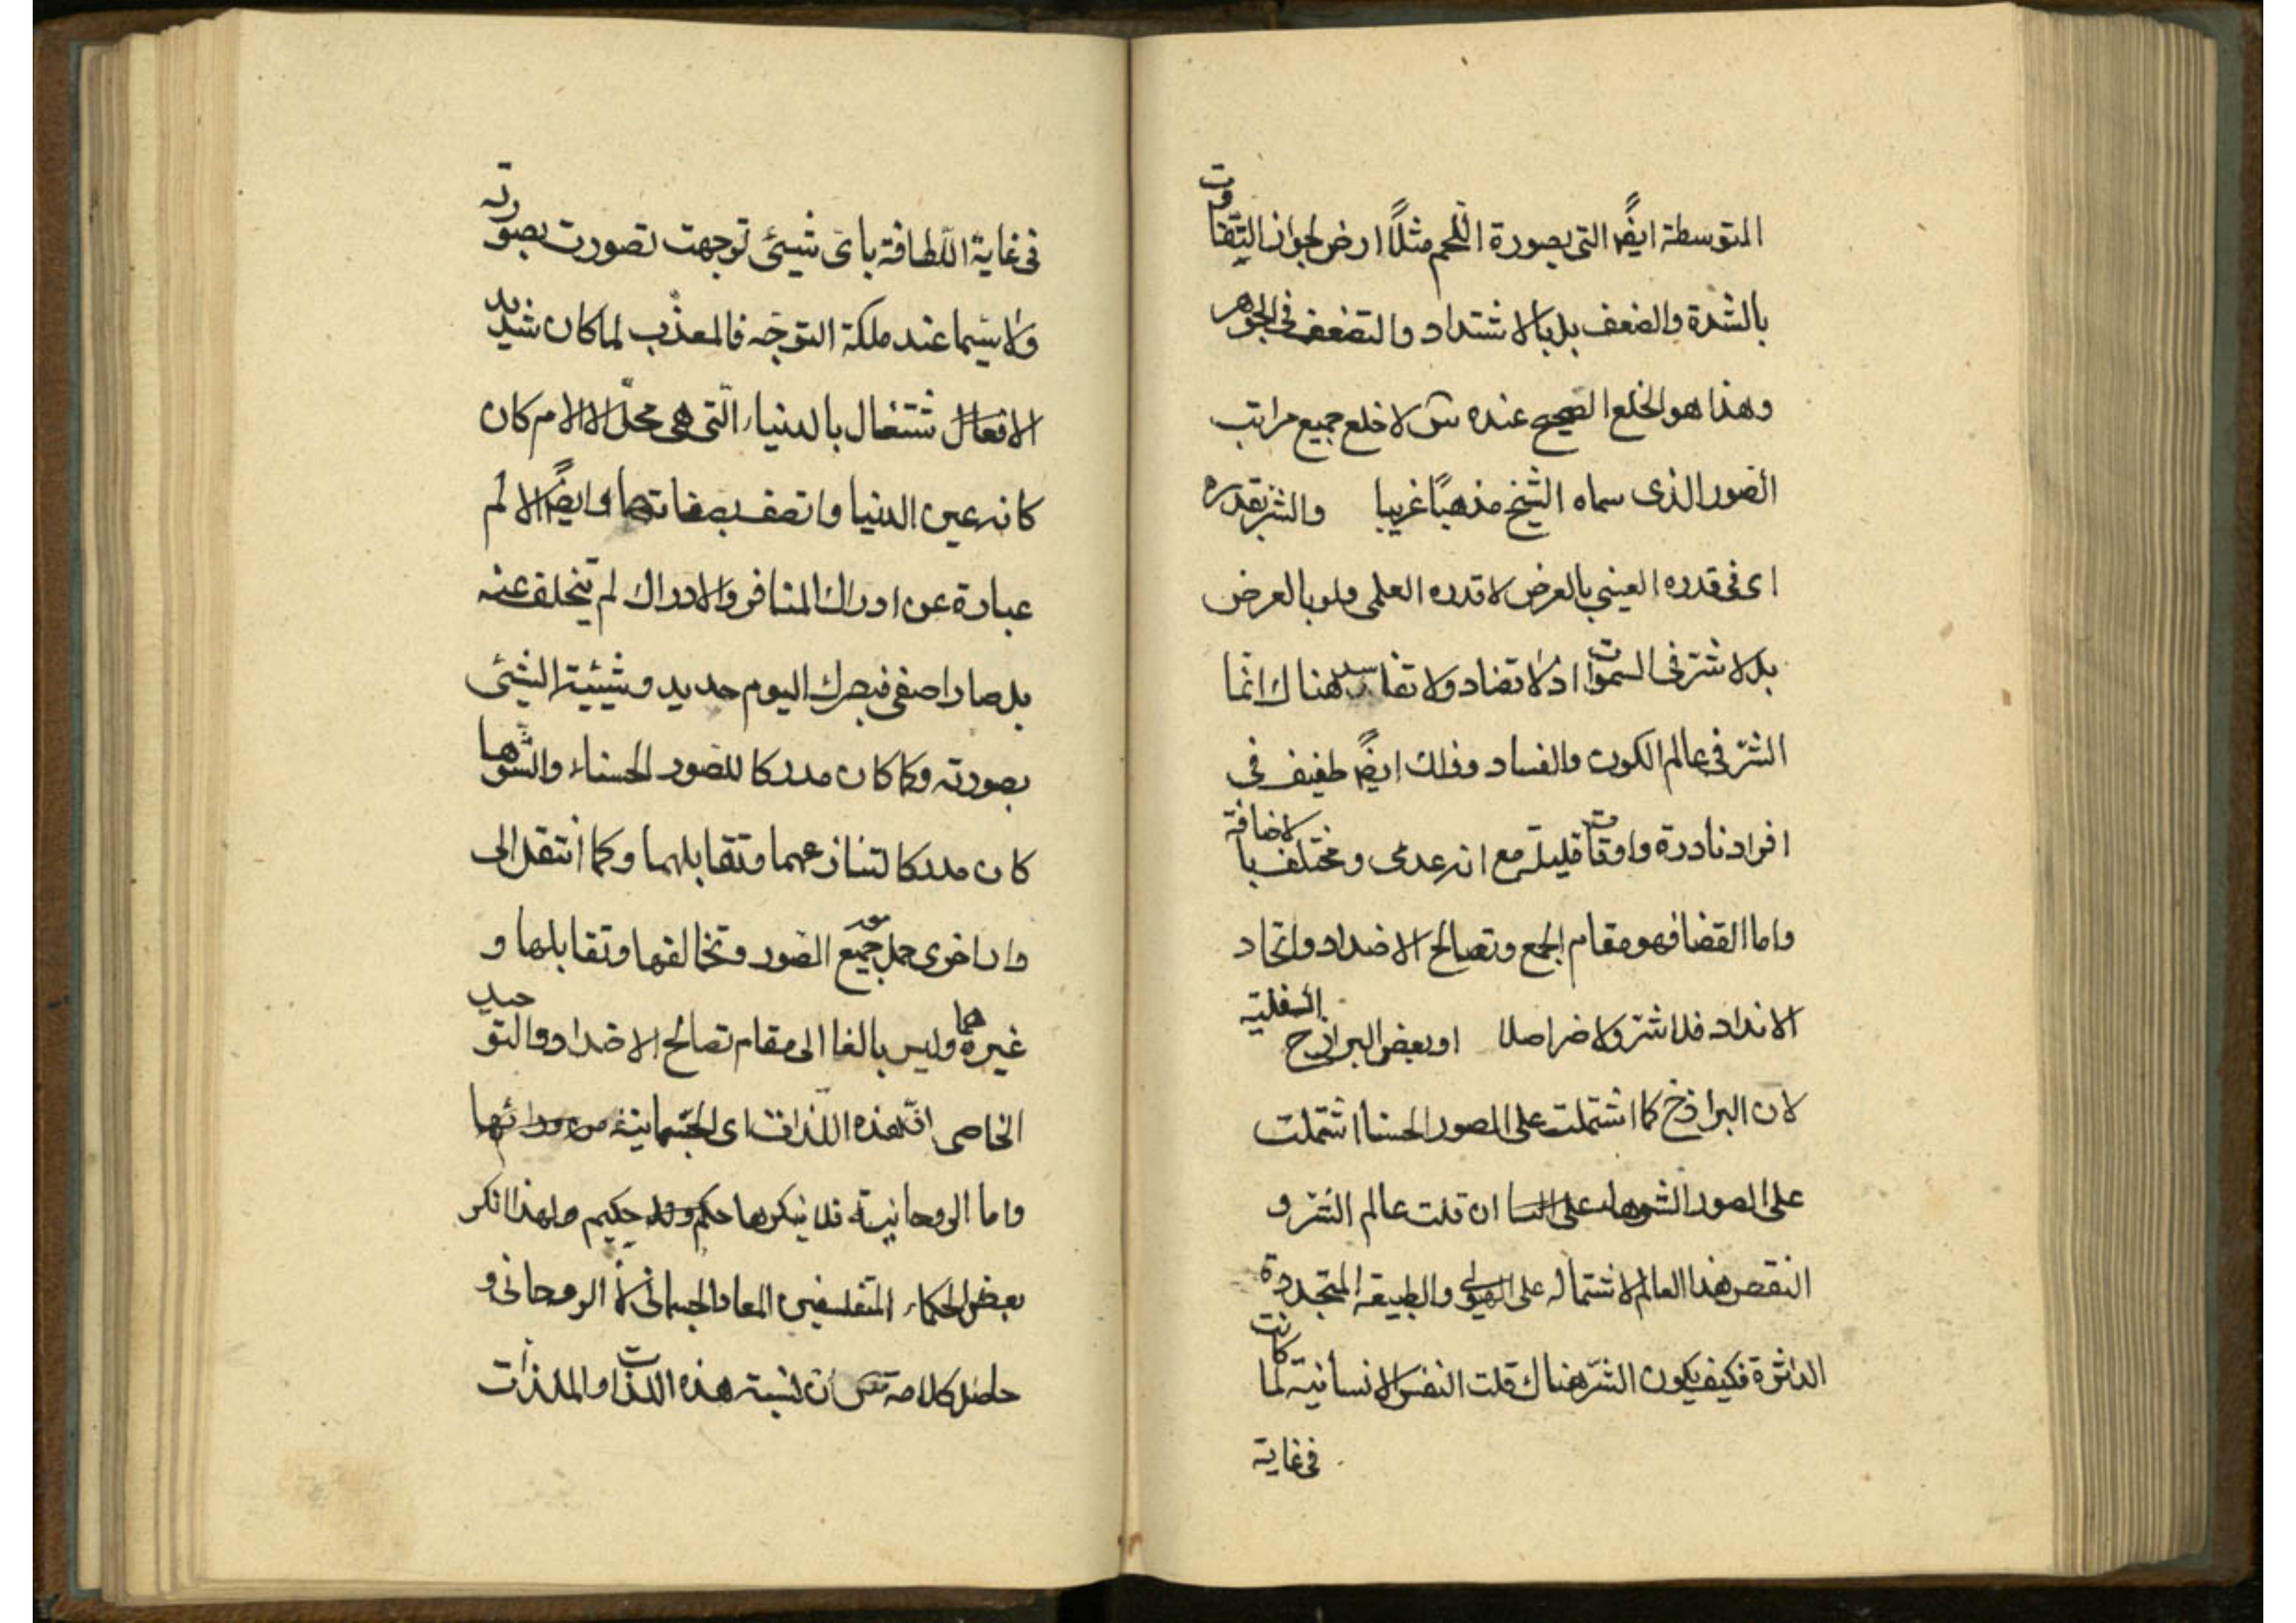 المتوسطة ايضًا التى بصورة اللّحم مثلًا ارض لجواز التفاوت
بالشدة والضعف بل بالاشتداد والتضعف فى الجوهر
وهذا هو الخلع الصحيح عنده س لا خلع جميع مراتب
الصور الذى سماه الشيخ مذهبًا غريبا والشر بقدره
اى فى قدره العينى بالعرض لا قدره العلمى ولو بالعرض
بل لا شرّ فى السموات اذ لا تضاد ولا تفاسد هناك انما
الشرّ فى عالم الكون والفساد وذلك ايضًا طفيف فى
افراد نادرة واوقات قليلة مع انه عدمى ومختلف بالاضافة
واما القضا فهو مقام الجمع وتصالح الاضداد واتحاد
الانداد فلا شرّ ولا ضر اصلا او بعض البرازخ السفلية
لان البرازخ كما اشتملت على الصور الحسنا اشتملت
على الصور الشوهاء ان قلت عالم الشر و
النقص هذا العالم لاشتماله على الهيولى والطبيعة المتجددة
الداثرة فكيف يكون الشرّ هناك قلت النفس الانسانية لما كانت
فى غاية
فى غاية اللّطافة باىّ شيئى توجهت تصورت بصورته
ولا سيّما عند ملكة التوجّه فالمعذّب لما كان شديد
الاشتغال بالدنيا الّتى هى محلّ الالام كان
كانه عين الدنيا واتصف بصفاتها وايضًا الالم
عبارة عن ادراك المنافر والادراك لم يتخلف عنه
بل صار اصفى فبصرك اليوم حديد وشيئية الشيئى
بصورته وكما كان مدركا للصور الحسناء والشوها
كان مدركا لتنازعهما وتقابلهما وكما انتقل الى
دار اخرى حمل معه جميع الصور وتخالفها وتقابلها و
غيرهما وليس بالغا الى مقام تصالح الاضداد والتوحيد
الخاصى انّ هذه اللّذات اى الجسمانية من ورائها
واما الروحانية فلا ينكرها حكيم ولهذا انكر
بعض الحكماء المتفلسفين المعاد الجسمانى لا الروحانى و
حاصل كلامه س ان نسبة هذه اللذات والملذات